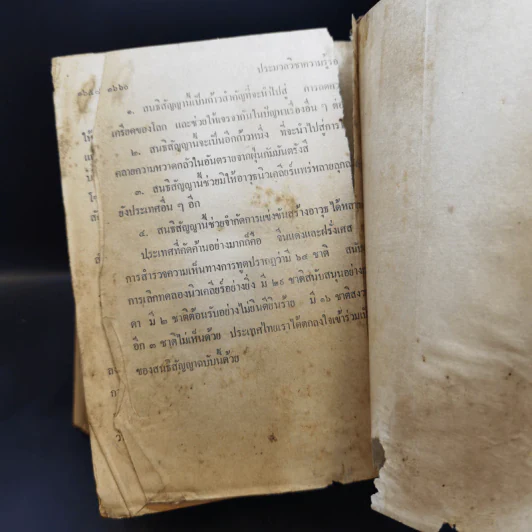 ประมวลวิชาความรู้รอ
๑. สนธิสัญญานี้เป็นก้าวสำคัญที่จะนำไปสู่ การลดความ
เครียดของโลก และช่วยให้เจรจากันในปัญหาเรื่องอื่น ๆ ต่อ
๒. สนธิสัญญานี้จะเป็นอีกก้าวหนึ่ง ที่จะนำไปสู่การ
คลายความหวาดกลัวในอันตรายจากฝุ่นกัมมันตรังสี
๓. สนธิสัญญานี้ช่วยมิให้อาวุธนิวเคลียร์แพร่หลายลุกลา
ยังประเทศอื่น ๆ อีก
๔. สนธิสัญญานี้ช่วยจำกัดการแข่งขันสร้างอาวุธ ได้หลาย
ประเทศที่คัดค้านอย่างมากก็คือ จีนแดงและฝรั่งเศส
การสำรวจความเห็นทางการทูตปรากฏว่ามี ๖๙ ชาติ สนับ
การเลิกทดลองนิวเคลียร์อย่างยิ่ง มี ๒๙ ชาติสนับสนุนอย่าง
ตา มี ๒ ชาติต้อนรับอย่างไม่ยินดียินร้าย มี ๑๖ ชาติสงว
อีก ๓ ชาติไม่เห็นด้วย ประเทศไทยเราได้ตกลงใจเข้าร่วมเป็
ของสนธิสัญญาฉบับนี้ด้วย